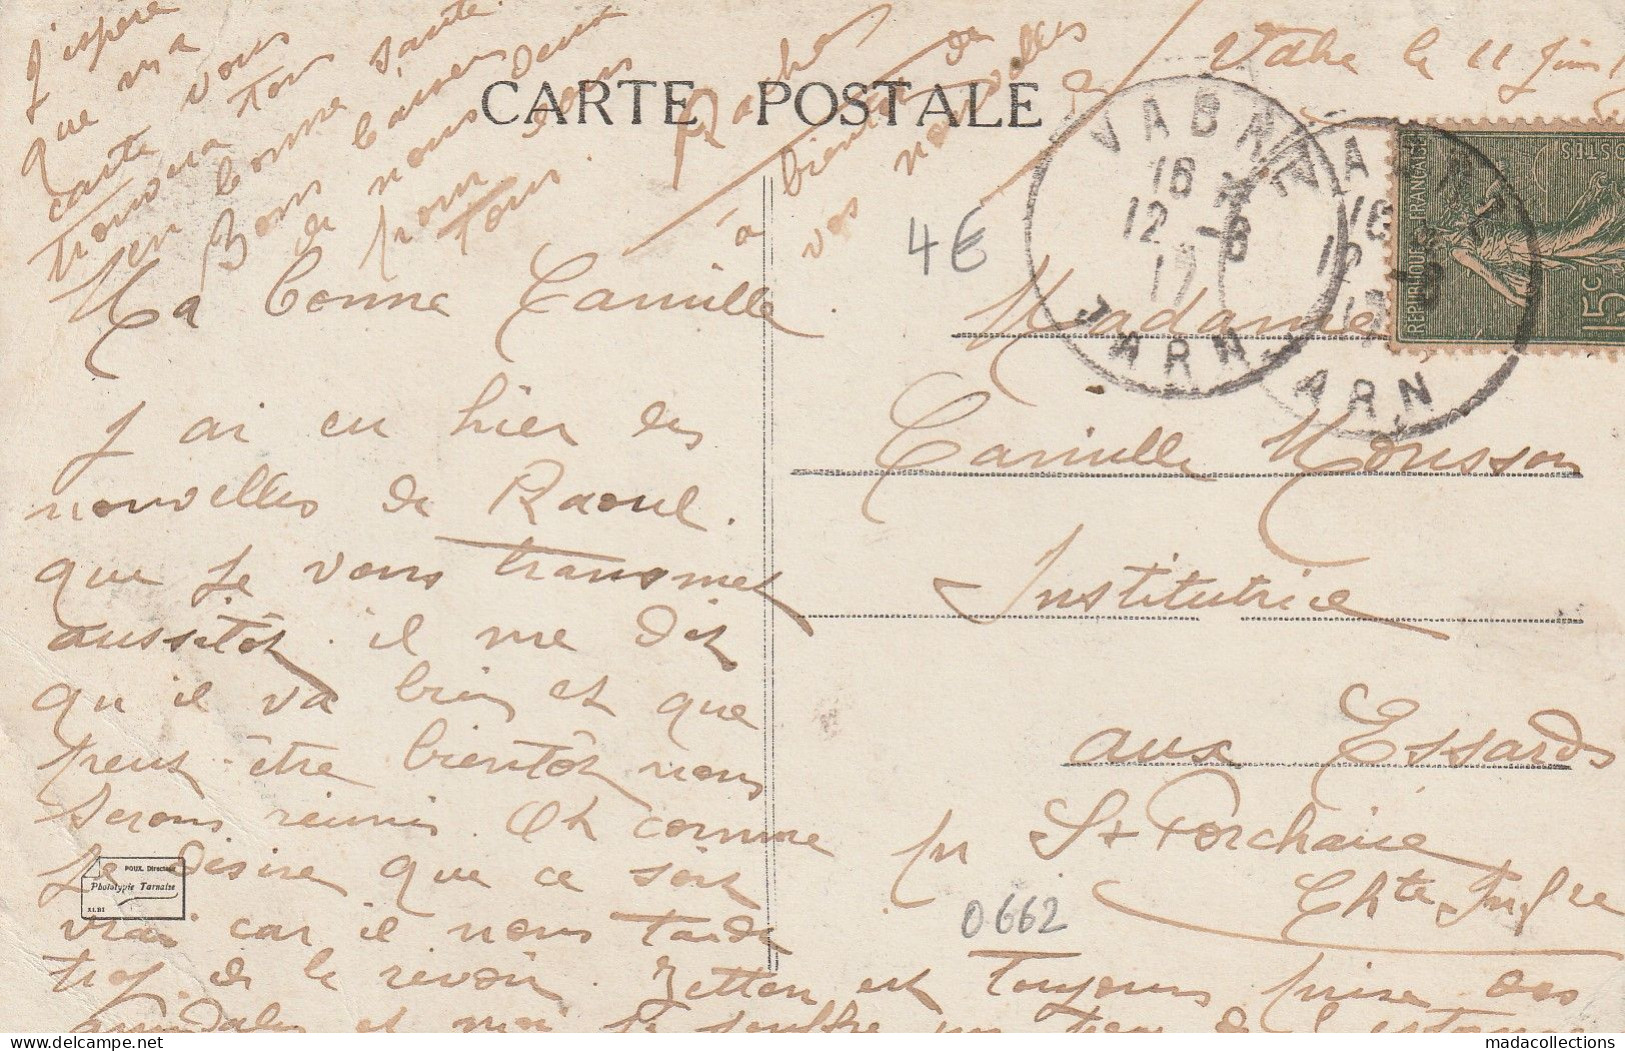 CARTE POSTALE
Vabre le 11 Juin
Ma bonne Camille
j'ai eu hier des
nouvelles de Raoul.
que je vous transmet
aussitôt. il me dit
qu'il va bien et que
peut-être bientôt nous
serons réunis. Oh comme
je désire que ce soit
vrai car il nous tarde
trop de le revoir. est toujours prise des
amygdales et moi je souffre un peu de l'estomac
J'espère
que ma
carte vous
trouvera tous
en bonne santé.
Bons baisers
de nous deux
pour vous
tous. Rachel
à bientôt de
vos nouvelles
4€
VABRE
16
12 -6
17
TARN
VABRE
16
12 -6
17
TARN
REPUBLIQUE FRANÇAISE
POSTES
15c
Madame
Camille Mousson
Institutrice
aux Essards
pr St Porchaire
Chte Infre
0662
POUX, Directeur
Phototypie Tarnaise
ALBI
madacollections